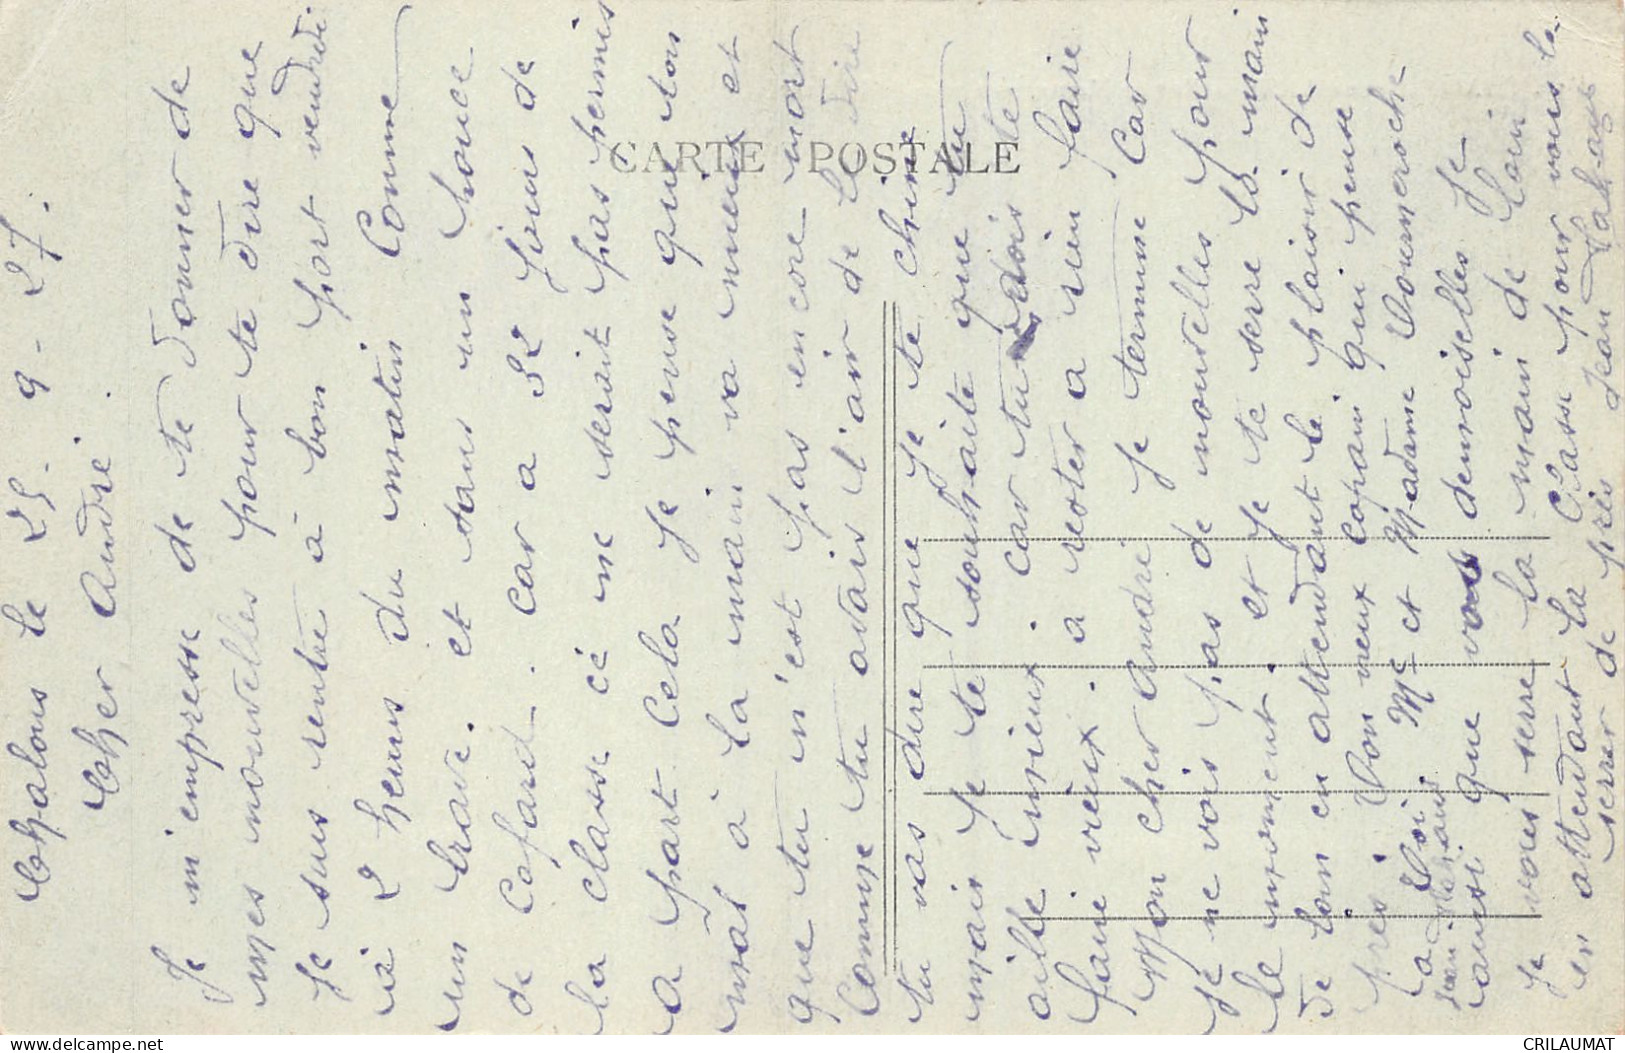 Chalons le 25-9-27.
Cher André.
Je m'empresse de te donner de
mes nouvelles pour te dire que
Je suis rentré à bon port vendredi
à 2 heures du matin Comme
un brave. et sans un pouce
de Cafard. car a 32 jours de
la classe cé ne serait pas permis
a part Cela Je pense que ton
mal à la main va mieux et
que tu n'est pas encore mort
Comme tu avais l'air de le dire
tu vas dire que Je te chine
mais Je te souhaite que tu
aille mieux. car tu dois être
faire vieux. a rester a rien faire
Mon cher André Je termine Car
Je ne vois pas de nouvelles pour
le moment. et Je te serre la main
de loin en attendant le plaisir de
près. Ton vieux copain qui pense
a Toi Mr et Madame Doumeroche
aussi que vos demoiselles Je
vous serre la main de loin
en attendant la Classe pour vous la
serrer de près Jean
CARTE POSTALE
delcampe.net
CRILAUMAT